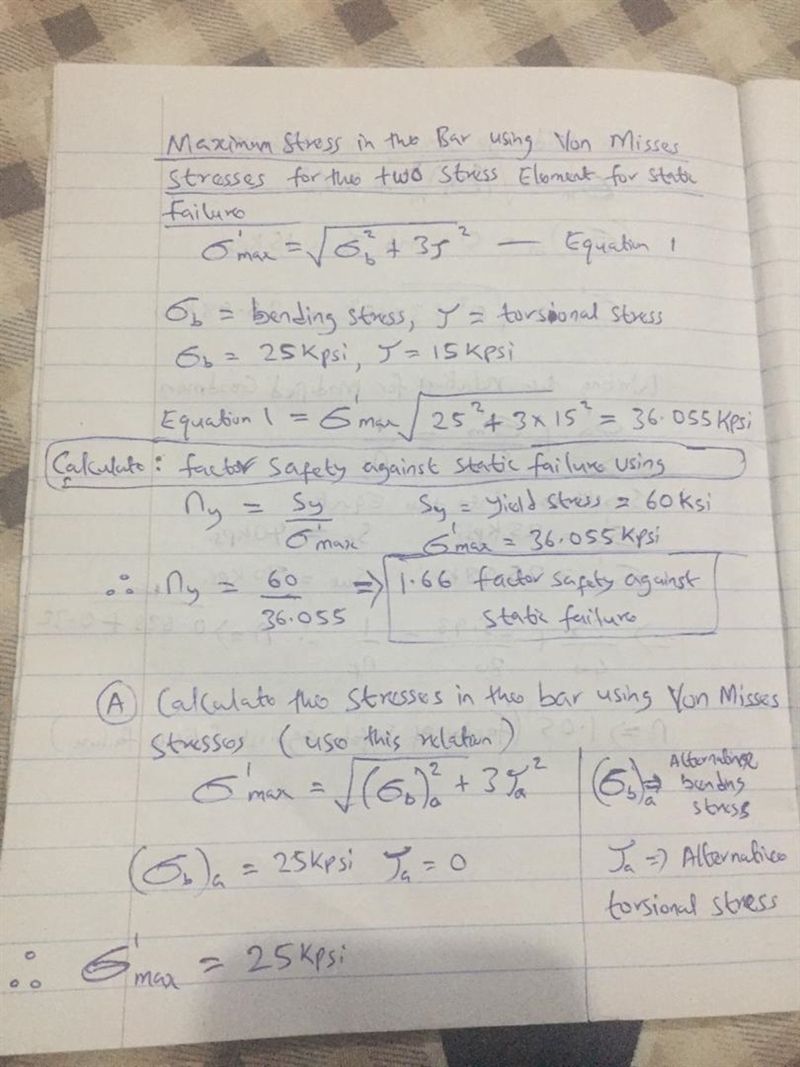 Maximum Stress in the Bar using Von Misses
Stresses for the two Stress Element for static
failure
σ'max = √(σb² + 3τ²) — Equation 1
σb = bending stress, τ = torsional stress
σb = 25Kpsi, τ = 15Kpsi
Equation 1 = σ'max √(25² + 3×15²) = 36.055Kpsi
Calculate: factor safety against static failure using
ny = Sy/σ'max Sy = yield stress = 60Ksi
σ'max = 36.055Kpsi
∴ ny = 60/36.055 ⇒ 1.66 factor safety against
static failure
(A) Calculate the stresses in the bar using Von Misses
stresses (use this relation)
σ'max = √((σb)a² + 3τa²)
(σb)a ⇒ Alternating
bending
stress
(σb)a = 25Kpsi τa = 0
τa ⇒ Alternative
torsional stress
∴ σ'max = 25Kpsi